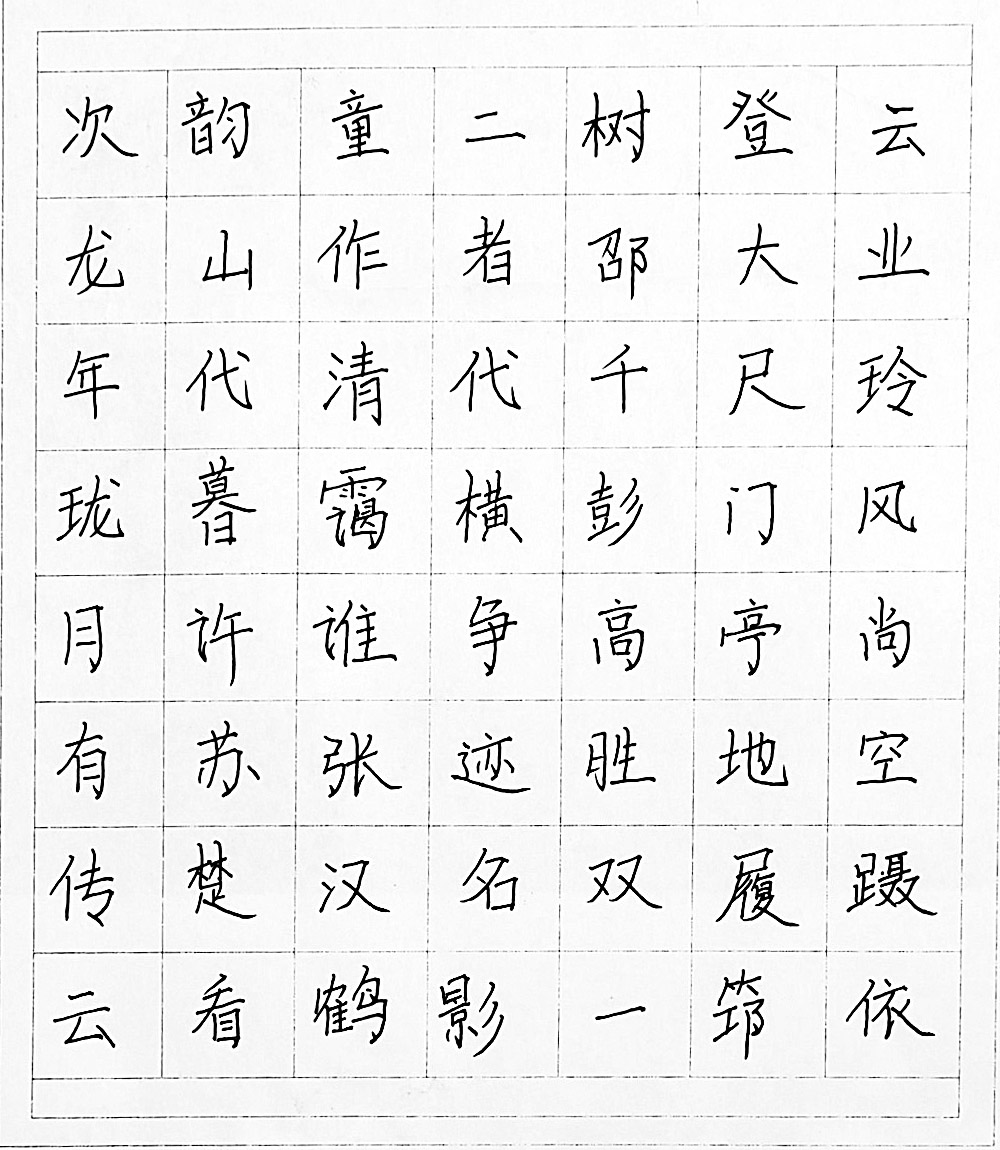 次韵童二树登云
龙山作者邵大业
年代清代千尺玲
珑暮霭横彭门风
月许谁争高亭尚
有苏张迹胜地空
传楚汉名双履蹑
云看鹤影一筇依